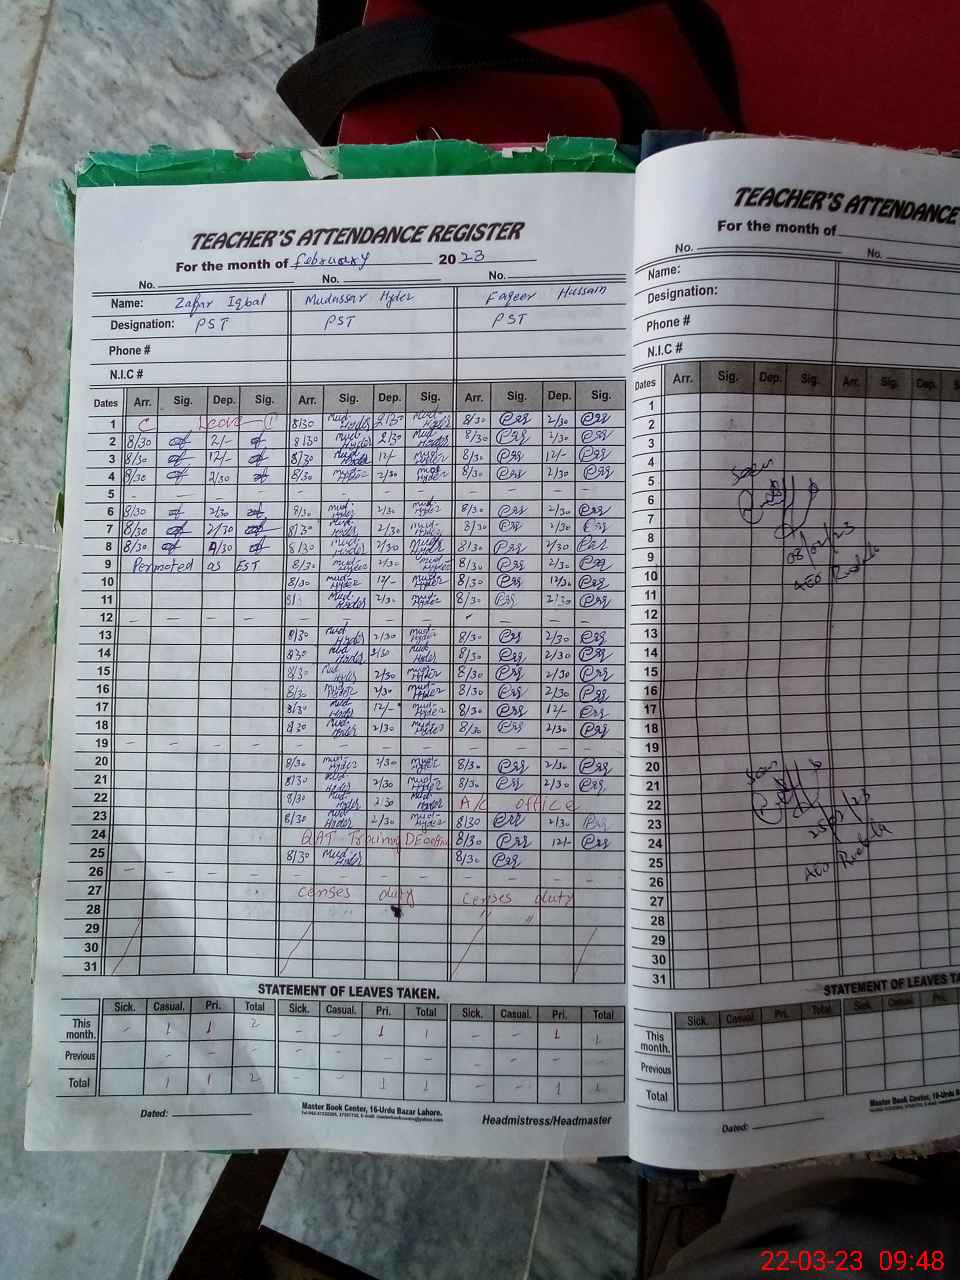 TEACHER'S ATTENDANCE REGISTER
For the month of February 2023
No. No. No.
Name: Zafar Iqbal Mudassar Hyder Faqeer Hussain
Designation: PST PST PST
Phone #
N.I.C #
Dates Arr. Sig. Dep. Sig. Arr. Sig. Dep. Sig. Arr. Sig. Dep. Sig.
1 C Leave 1 8/30 Mud-Hyder 2/30 Mud-Hyder 8/30 2/30
2 8/30 2/- 8/30 Mud-Hyder 2/30 Mud-Hyder 8/30 2/30
3 8/30 12/- 8/30 Mud-Hyder 12/- Mud-Hyder 8/30 12/-
4 8/30 2/30 8/30 Mud-Hyder 2/30 Mud-Hyder 8/30 2/30
5 - - - - - - - - - - - -
6 8/30 2/30 8/30 Mud-Hyder 2/30 Mud-Hyder 8/30 2/30
7 8/30 2/30 8/30 Mud-Hyder 2/30 Mud-Hyder 8/30 2/30
8 8/30 2/30 8/30 Mud-Hyder 2/30 Mud-Hyder 8/30 2/30
9 Permoted as EST 8/30 Mud-Hyder 2/30 Mud-Hyder 8/30 2/30
10 8/30 Mud-Hyder 12/- Mud-Hyder 8/30 12/30
11 8/3 Mud-Hyder 2/30 Mud-Hyder 8/30 2/30
12 - - - - - - - - - - -
13 8/30 Mud-Hyder 2/30 Mud-Hyder 8/30 2/30
14 8/30 Mud-Hyder 2/30 Mud-Hyder 8/30 2/30
15 8/30 Mud-Hyder 2/30 Mud-Hyder 8/30 2/30
16 8/30 Mud-Hyder 2/30 Mud-Hyder 8/30 2/30
17 8/30 Mud-Hyder 12/- Mud-Hyder 8/30 12/-
18 8/30 Mud-Hyder 2/30 Mud-Hyder 8/30 2/30
19 - - - - - - - - - - - -
20 8/30 Mud-Hyder 2/30 Mud-Hyder 8/30 2/30
21 8/30 Mud-Hyder 2/30 Mud-Hyder 8/30 2/30
22 8/30 Mud-Hyder 2/30 Mud-Hyder A/c office
23 8/30 Mud-Hyder 2/30 Mud-Hyder 8/30 2/30
24 QAT Training DEO office 8/30 12/-
25 8/30 Mud-Hyder 8/30
26 - - - - - - - - - - - -
27 censes duty censes duty
28 " "
29
30
31
STATEMENT OF LEAVES TAKEN.
Sick. Casual. Pri. Total Sick. Casual. Pri. Total Sick. Casual. Pri. Total
This month. - 1 1 2 - - 1 1 - - 1 1
Previous - - - - - - - - - - -
Total 1 1 2 - - 1 1 - - 1 1
Dated:
Master Book Center, 16-Urdu Bazar Lahore.
Headmistress/Headmaster
TEACHER'S ATTENDANCE
For the month of
No. No.
Name:
Designation:
Phone #
N.I.C #
Dates Arr. Sig. Dep. Sig. Arr. Sig. Dep.
1
2
3
4
5
6
7
8
9
10
11
12
13
14
15
16
17
18
19
20
21
22
23
24
25
26
27
28
29
30
31
Seen
08/02/23
AEO
Seen
AEO
STATEMENT OF LEAVES TA
Sick. Casual. Pri. Total Sick. Casual. Pri.
This month.
Previous
Total
Dated:
Master Book Center, 16-Urdu Bazar
22-03-23 09:48